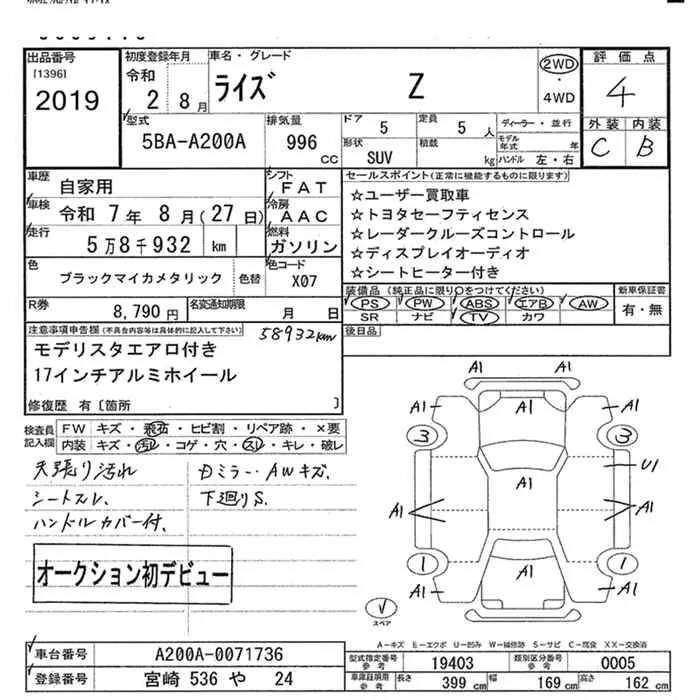 出品番号
[1396]
2019
初度登録年月
令和
2 8月
車名・グレード
ライズ Z
2WD
・
4WD
評価点
4
外装 内装
C B
型式
5BA-A200A
排気量
996 CC
ドア 5
定員 5 人
形状 SUV
積載 kg
ディーラー・並行
モデル年式 年
ハンドル 左・右
車歴
自家用
シフト
FAT
車検
令和 7年 8月(27日)
冷房
AAC
走行
5万8千932 km
燃料
ガソリン
色
ブラックマイカメタリック 色替
色コード
X07
R券
8,790 円
名変通知期限
月 日
セールスポイント(正常に機能するものに限ります)
☆ユーザー買取車
☆トヨタセーフティセンス
☆レーダークルーズコントロール
☆ディスプレイオーディオ
☆シートヒーター付き
装備品(純正品に限り○をつけてください)
PS PW ABS エアB AW
SR ナビ TV カワ
新車保証書
有・無
後日品
注意事項申告欄(不具合内容等は具体的に記入して下さい)
58932km
モデリスタエアロ付き
17インチアルミホイール
修復歴 有〔箇所 〕
検査員
記入欄
FW キズ・飛石・ヒビ割・リペア跡・×要
内装 キズ・汚れ・コゲ・穴・スレ・キレ・破レ
天張り汚れ
シートスレ、
ハンドルカバー付、
Dミラー・AWキズ、
下廻りS.
オークション初デビュー
A1 A1
A1 A1 A1
3 3
U1
A1 A1 A1
1 1
A1 A1 A1
スペア
A-キズ E-エクボ U-凹み W-補修跡 S-サビ C-腐食 XX-交換済
車台番号
A200A-0071736
登録番号
宮崎 536 や 24
型式指定番号
参考
19403
類別区分番号
参考
0005
車庫証明用
参考
長さ 399 cm
幅 169 cm
高さ 162 cm